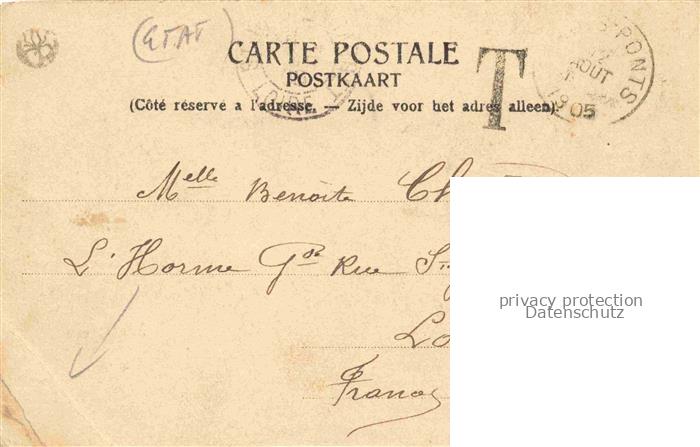 (ETAT)
CARTE POSTALE
POSTKAART
(Côté réservé a l'adresse. — Zijde voor het adres alleen).
T
PONTS
AOUT
1905
LOIRE
Melle Benoite Ch
L'Horme Gde Rue St
Lo
France
privacy protection
Datenschutz